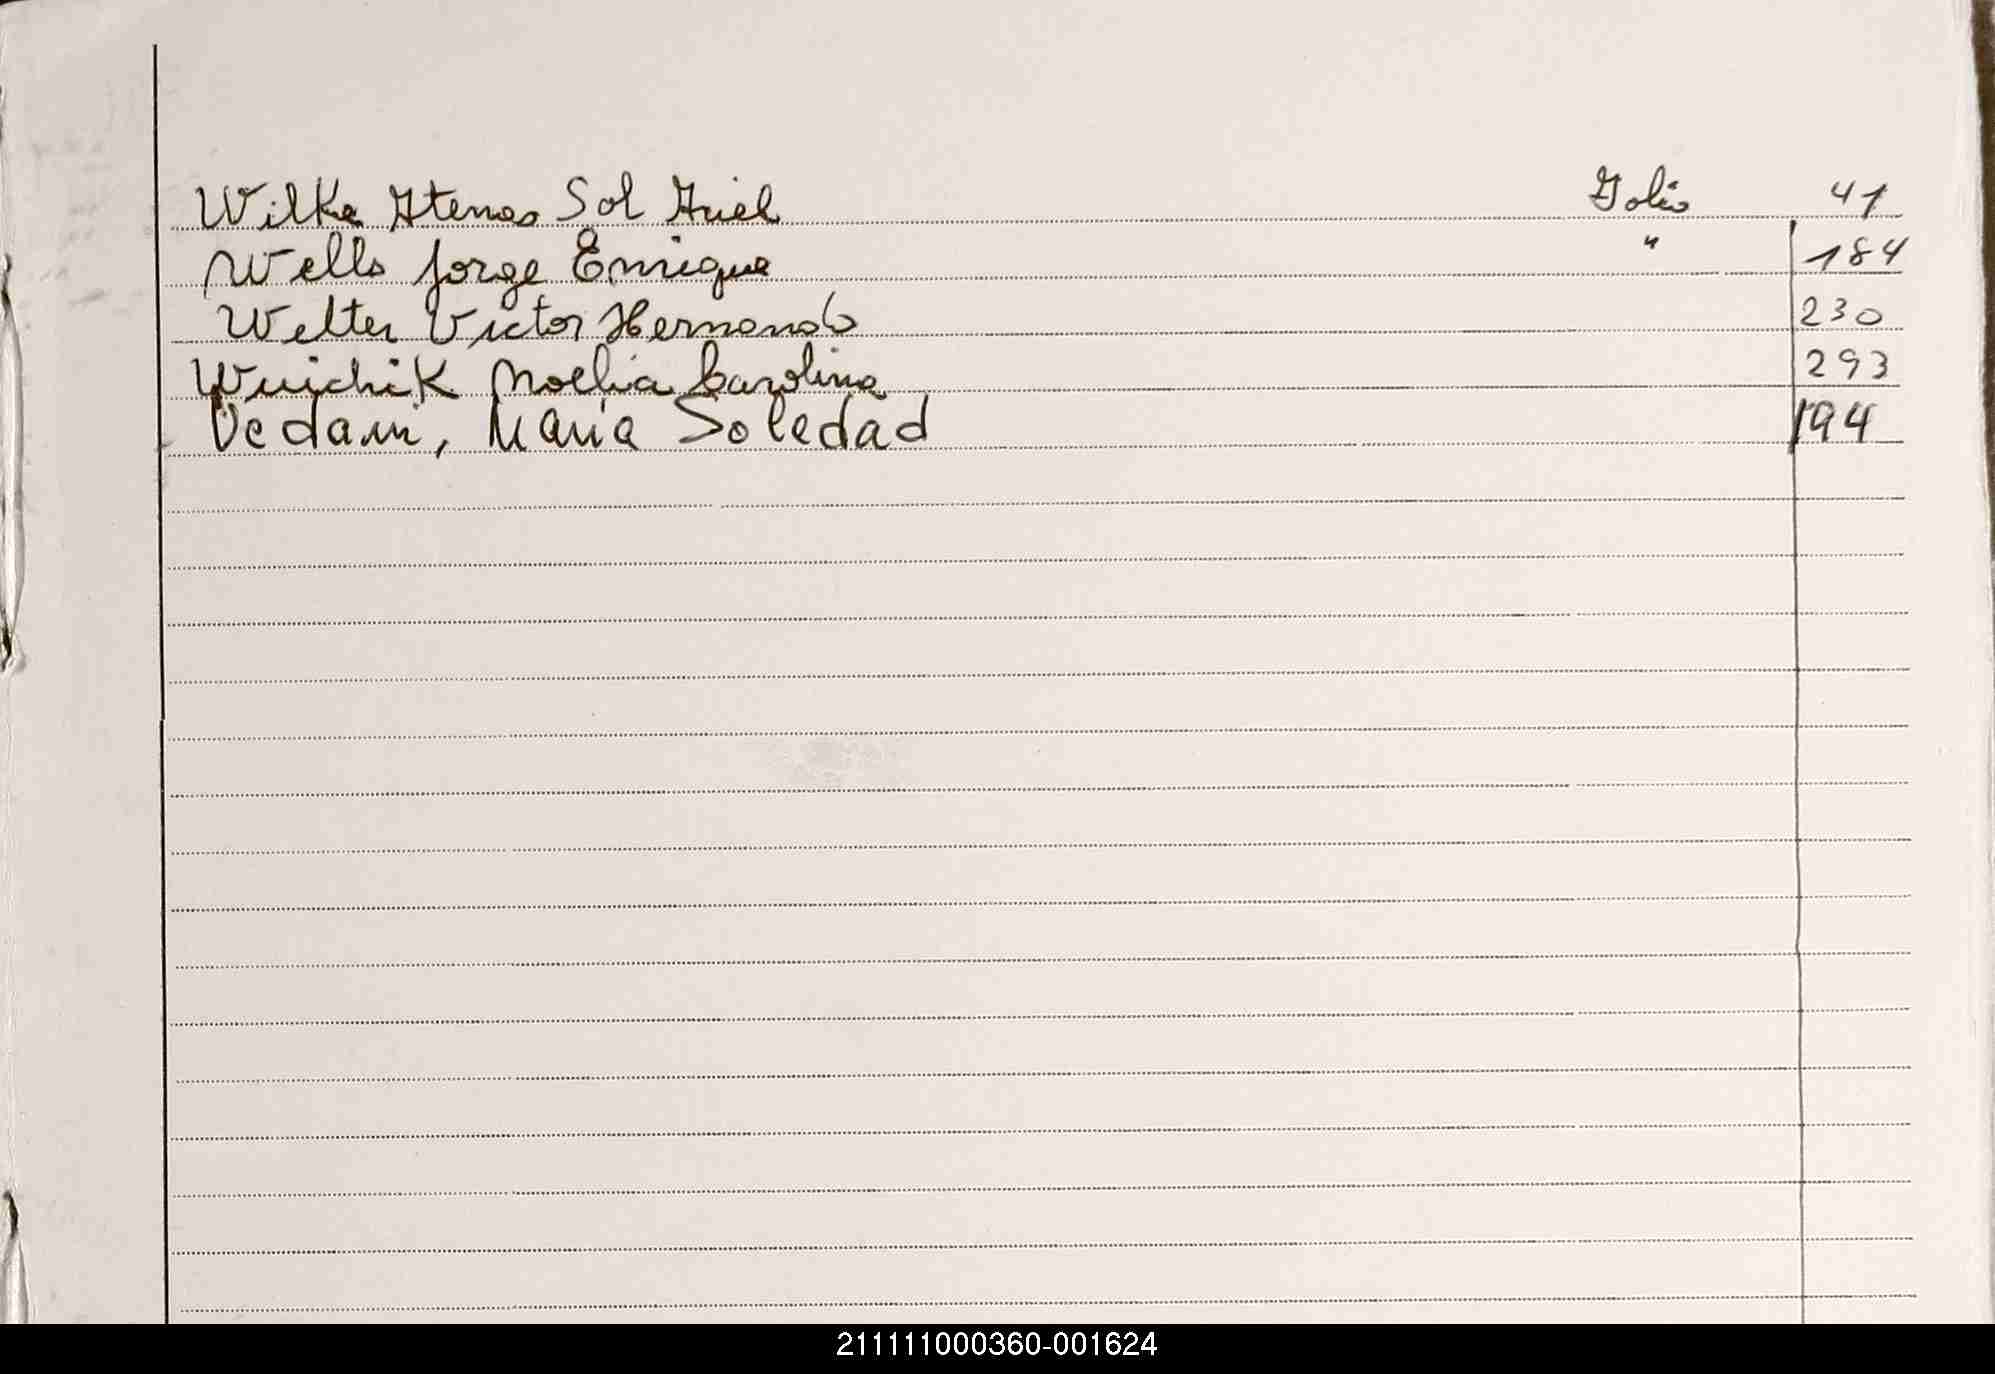 Wilke Atenas Sol Ariel Folio 41
Wells Jorge Enrique " 184
Welter Victor Hernando 230
Wuichik Noelia Carolina 293
Vedain, Maria Soledad 194
211111000360-001624